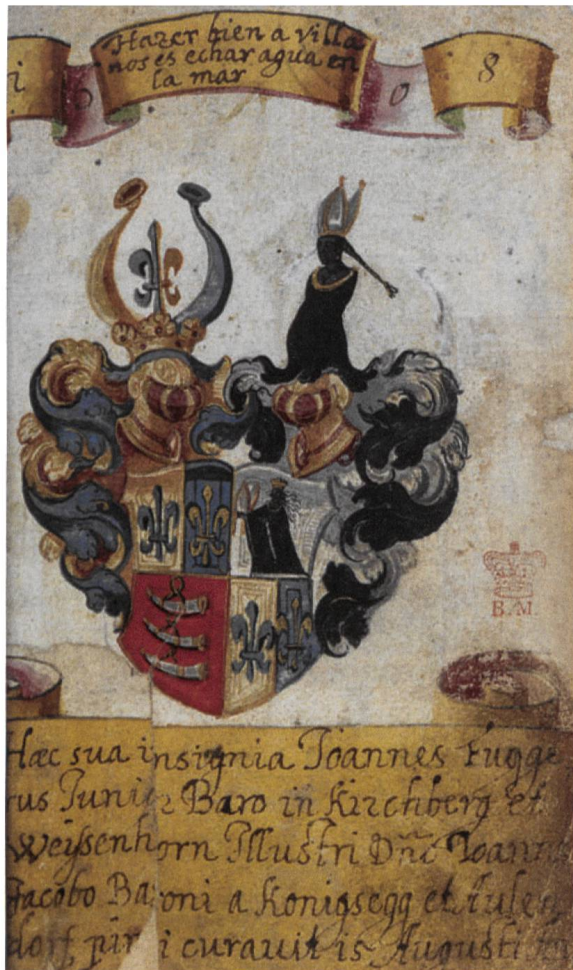 Hazer bien a villa
nos es echar agua en
la mar
i 6 0 8
B.M.
Hæc sua insignia Joannes Fugge
rus Junior Baro in Kirchberg et
Weyssenhorn Illustri Dño Joann
Jacobo Baroni a Konigsegg et Aulen
dorf pin i curavit is Augusti